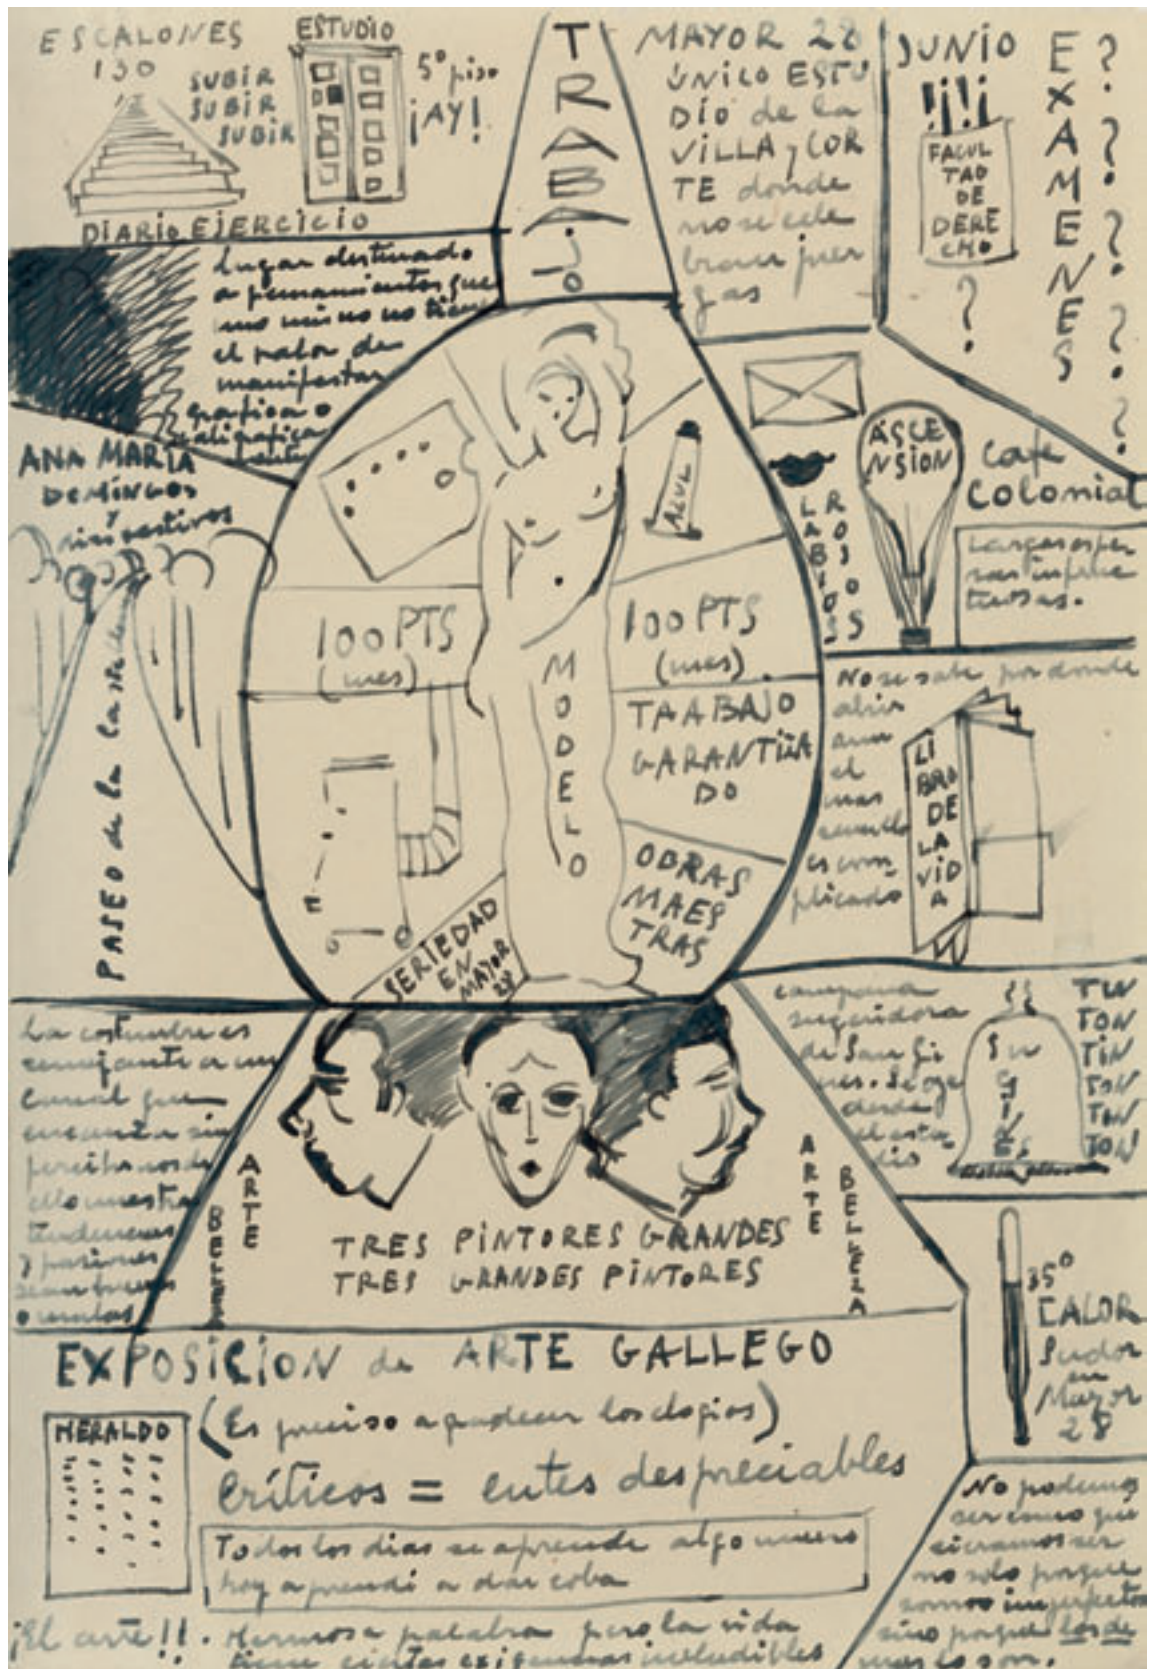 ESCALONES
130
SUBIR
SUBIR
SUBIR
ESTUDIO
5º piso
¡AY!
DIARIO EJERCICIO
TRABAJO
MAYOR 28
ÚNICO ESTU
DIO de la
VILLA y COR
TE donde
no se cele
bran juer
gas
JUNIO
¡¡!¡
FACUL
TAD
DE
DERE
CHO
?
EXAMENES
? ? ? ? ?
lugar destinado
a pensamientos que
uno mismo no tiene
el valor de
manifestar
grafica o
caligrafica
ANA MARIA
DOMINGOS
y
dias festivos
PASEO de la Castellana
100 PTS
(mes)
AZUL
100 PTS
(mes)
MODELO
TRABAJO
GARANTIZA
DO
OBRAS
MAES
TRAS
SERIEDAD
EN
MAYOR
28
LABIOS
ROJOS
ASCE
NSION
Café
Colonial
Largas espe
ras infruc
tuosas.
No se sabe por donde
abrir
aun
el
mas
sencillo
es com-
plicado
LI
BRO
DE
LA
VID
A
La costumbre es
semejante a un
canal que
encauza sin
percibirnos de
ello nuestras
tendencias
y pasiones
sean buenas
o malas
ARTE
BELLEZA
TRES PINTORES GRANDES
TRES GRANDES PINTORES
ARTE
BELLEZA
campana
sugeridora
de San Gi
nes. Se oye
desde
el estu-
dio
Sn
GINES
TUN
TON
TIN
TON
TUN
TON
35º
CALOR
Sudor
en
Mayor
28
EXPOSICION de ARTE GALLEGO
HERALDO
(Es preciso agradecer los elogios)
Críticos = entes despreciables
Todos los dias se aprende algo nuevo
hoy aprendi a dar coba
¡El arte!!. Hermosa palabra pero la vida
tiene ciertas exigencias ineludibles
No podemos
ser como qui
sieramos ser
no solo porque
somos imperfectos
sino porque los de
mas lo son.